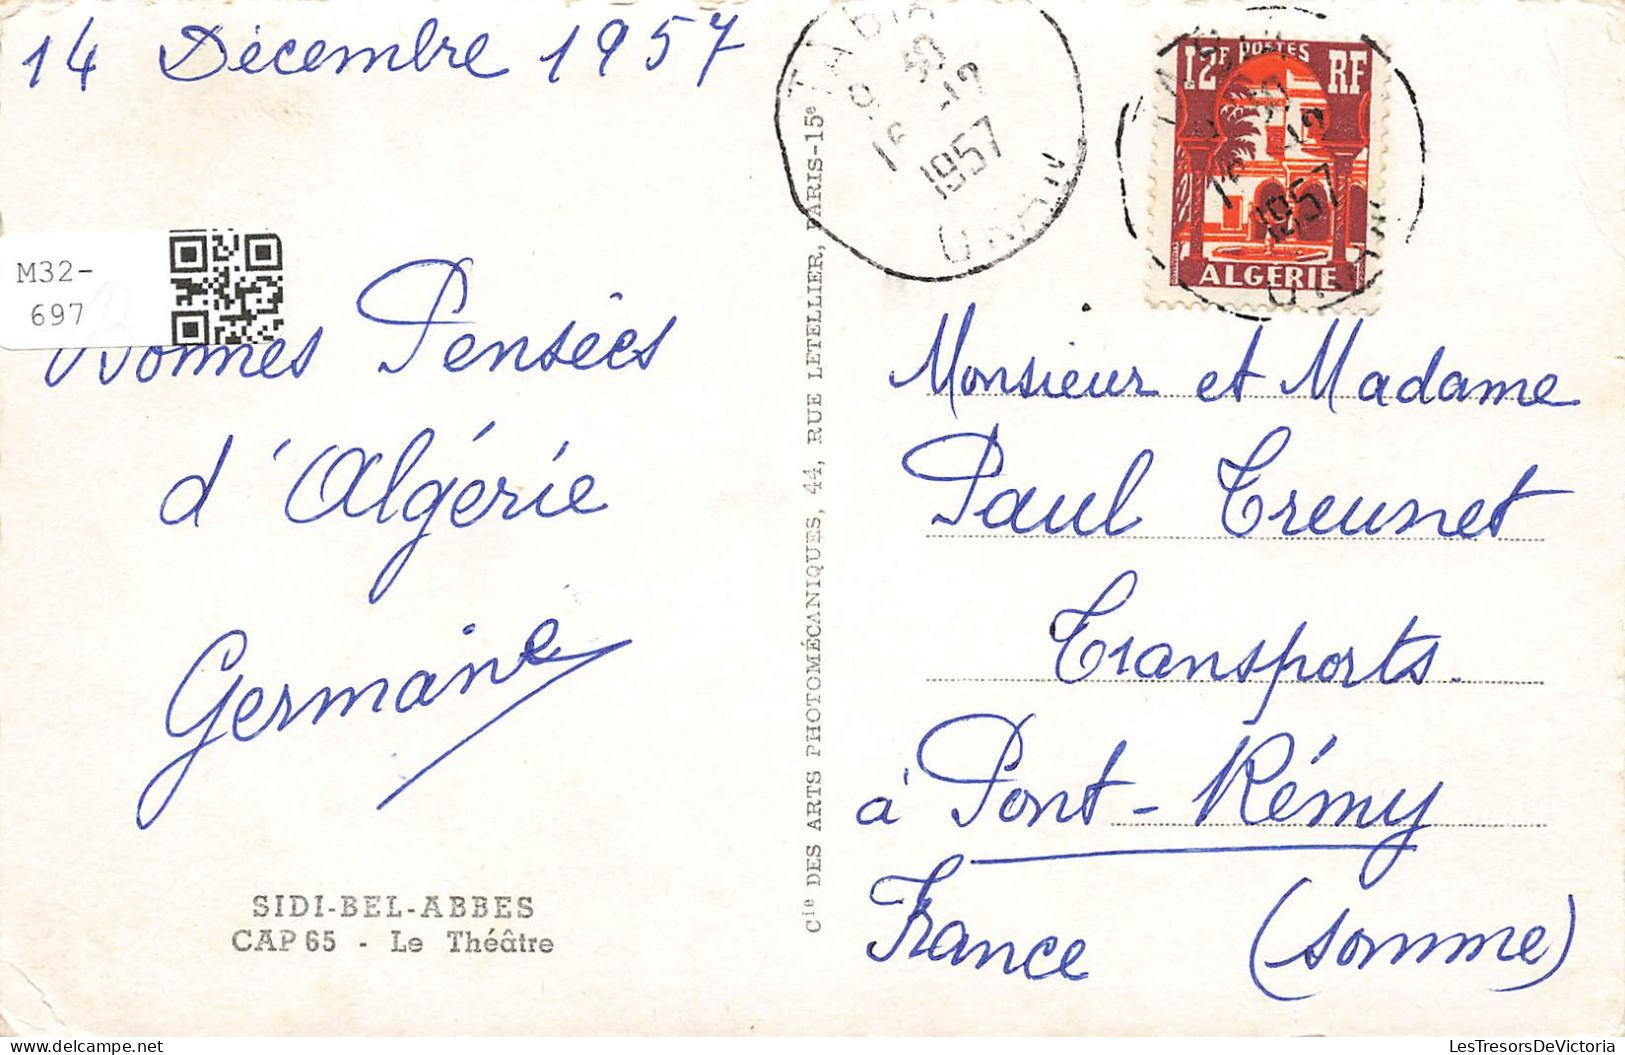 14 Décembre 1957
M32-
697
Bonnes Pensées
d'Algérie
Germaine
SIDI-BEL-ABBES
CAP 65 - Le Théâtre
Cie DES ARTS PHOTOMÉCANIQUES, 44, RUE LETELLIER, PARIS-15e
TABIA
1957
ORAN
12F POSTES RF
ALGÉRIE
1957
ORAN
Monsieur et Madame
Paul Treunet
Transports.
à Pont-Rémy
France (Somme)
LesTresorsDeVictoria